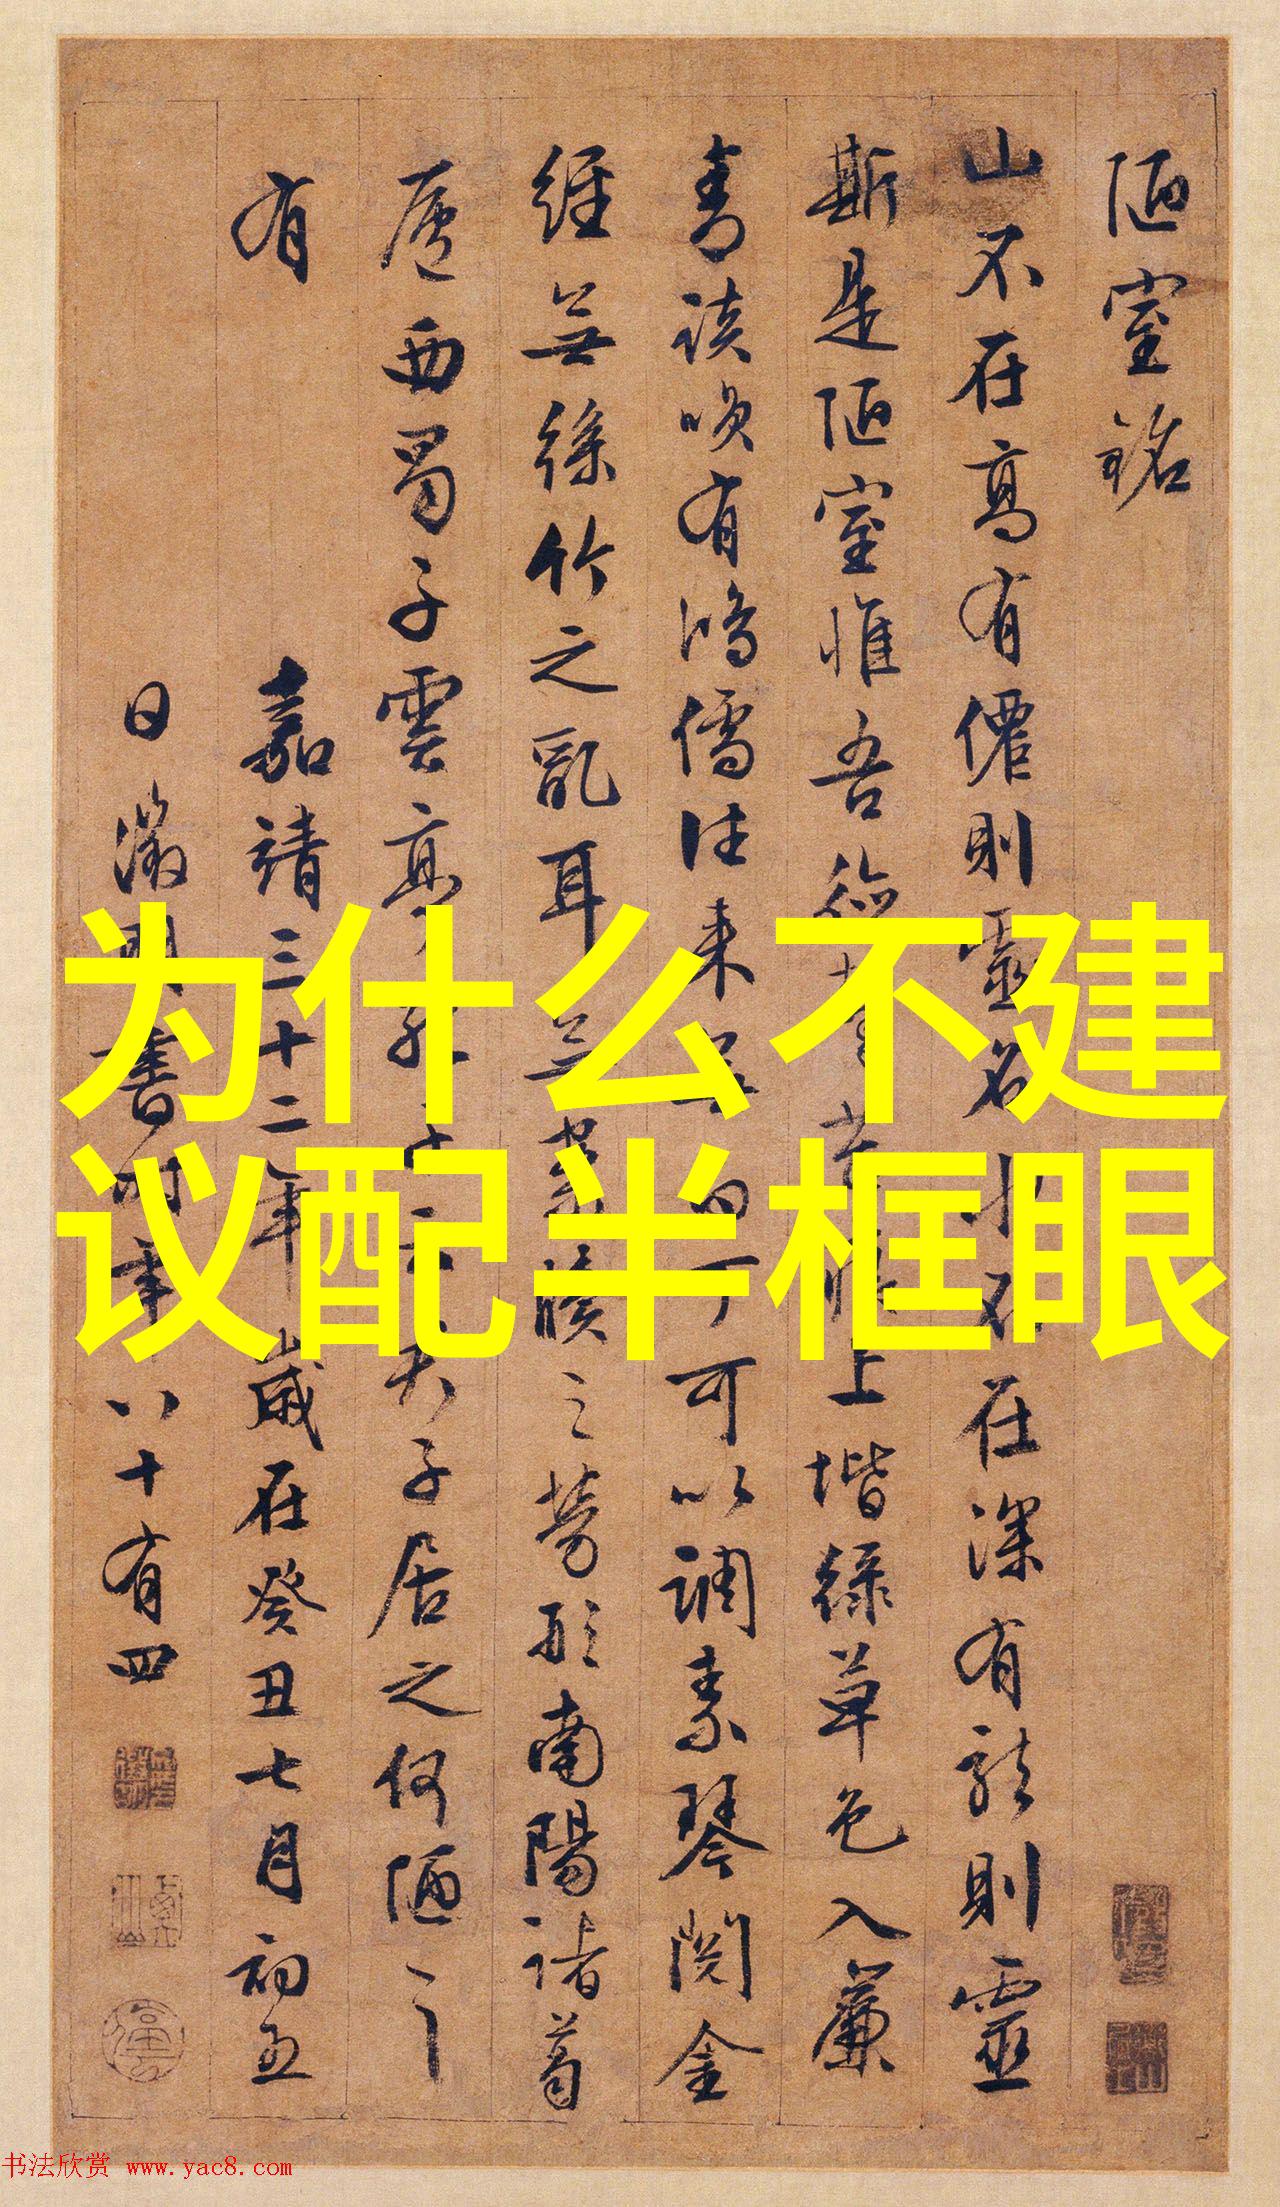 陋室銘
山不在高有僊則靈名水不在深有龍則靈
斯是陋室惟吾德馨苔痕上堦綠草色入簾
青談唉有鴻儒往来無白丁可以調素琴閱金
經無絲竹之亂耳無案牘之勞形南陽諸葛
廬西蜀子雲亭孔子云君子居之何陋之
有
嘉靖三十二年歲在癸丑七月初五
日徵明書時年八十有四
为什么不建
议配半框眼
书法欣赏 www.yac8.com